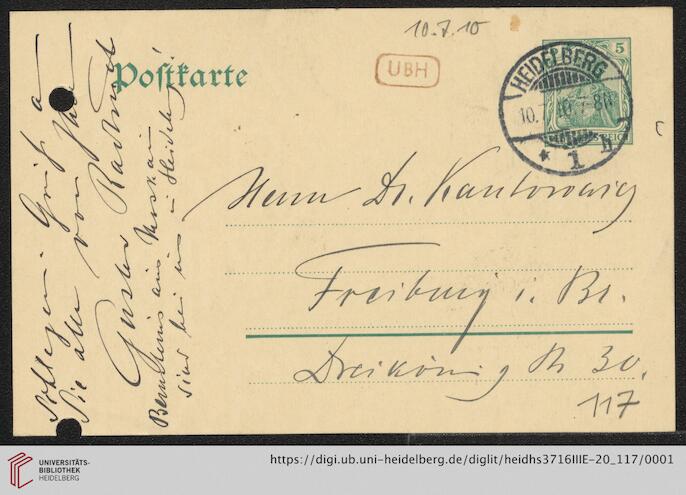 10.7.10
Postkarte
UBH
5
HEIDELBERG
10.7.10.7-8N
* 1 h
Herrn Dr. Kantorowicz
Freiburg i. Br.
Dreikönig Str 30.
117
Gruß a
Sie alle von Ihrem
Gustav Radbruch
Bernsteins aus
sind bei uns in Heidelbg!
UNIVERSITÄTS-
BIBLIOTHEK
HEIDELBERG
https://digi.ub.uni-heidelberg.de/diglit/heidhs3716IIIE-20_117/0001